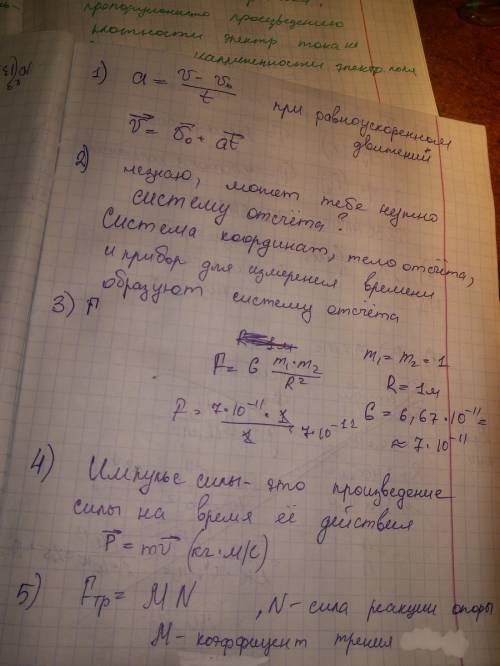 пропорционально произведению
плотности электр тока на
напряженности электр. поля
1) a = (v - v₀)/t при равноускоренном
движений
v⃗ = v⃗₀ + a⃗t
2) незнаю, может тебе нужно
систему отсчёта?
Система координат, тело отсчёта,
и прибор для измерения времени
образуют систему отсчёта
3) F
F = G m₁·m₂/R² m₁ = m₂ = 1
R = 1м
F = 7·10⁻¹¹·1/1 = 7·10⁻¹¹ G = 6,67·10⁻¹¹ =
≈ 7·10⁻¹¹
4) Импульс силы - это произведение
силы на время её действия
P⃗ = mv⃗ (кг·м/с)
5) Fтр = MN , N - сила реакции опоры
M - коэффицент трения